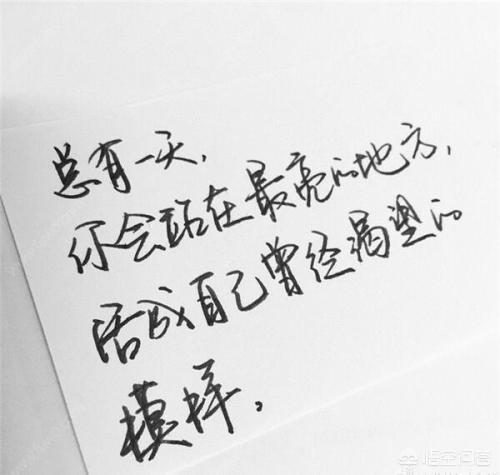 总有一天，
你会站在最亮的地方，
活成自己曾经渴望的
模样。
悟空问答